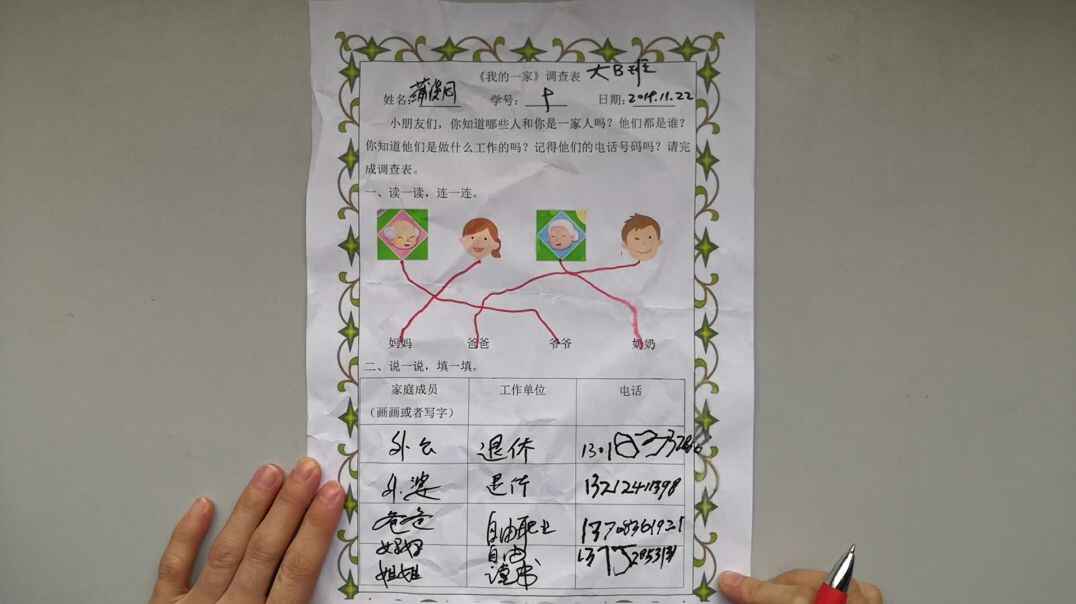 《我的一家》调查表 大B班
姓名: 学号: 日期: 2019.11.22
小朋友们，你知道哪些人和你是一家人吗？他们都是谁？
你知道他们是做什么工作的吗？记得他们的电话号码吗？请完
成调查表。
一、读一读，连一连。
妈妈 爸爸 爷爷 奶奶
二、说一说，填一填。
家庭成员 工作单位 电话
（画画或者写字）
外公 退休
外婆 退休 13212411398
爸爸 自由职业 13708361921
妈妈 自由
姐姐 读书